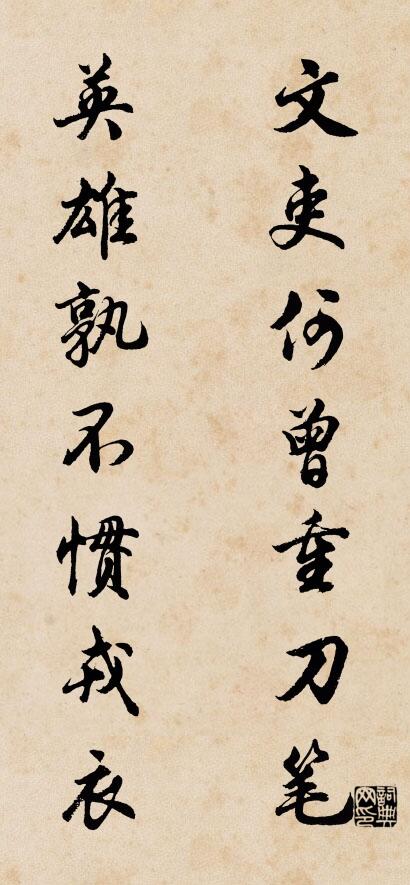 文吏何曾重刀笔
英雄孰不惯戎衣
詞典网印